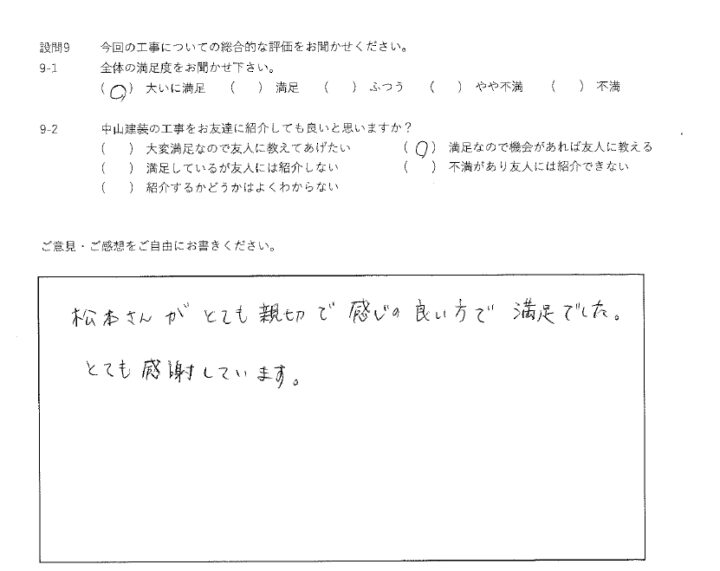 設問9 今回の工事についての総合的な評価をお聞かせください。
9-1 全体の満足度をお聞かせ下さい。
(○) 大いに満足 ( ) 満足 ( ) ふつう ( ) やや不満 ( ) 不満
9-2 中山建装の工事をお友達に紹介しても良いと思いますか？
( ) 大変満足なので友人に教えてあげたい (○) 満足なので機会があれば友人に教える
( ) 満足しているが友人には紹介しない ( ) 不満があり友人には紹介できない
( ) 紹介するかどうかはよくわからない
ご意見・ご感想をご自由にお書きください。
松本さんがとても親切で感じの良い方で満足でした。
とても感謝しています。